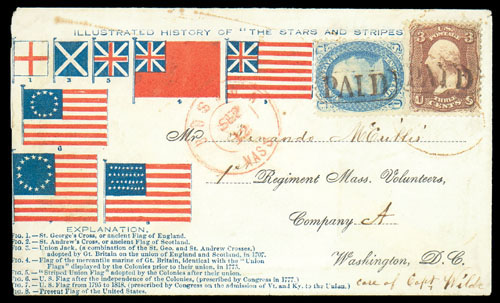 ILLUSTRATED HISTORY OF "THE STARS AND STRIPES
U.S. POSTAGE
3 3
THREE CENTS
PAID
PAID
1 2 3 4 5
6
7 8
Mr.
1st Regiment Mass. Volunteers,
Company A
Washington, D. C.
care of Capt Wilde
EXPLANATION.
No. 1.—St. George's Cross, or ancient Flag of England.
No. 2.—St. Andrew's Cross, or ancient Flag of Scotland.
No. 3.—Union Jack, (a combination of the St. Geo. and St. Andrew Crosses,)
adopted by Gt. Britain on the union of England and Scotland, in 1707.
No. 4.—Flag of the mercantile marine of Gt. Britain, identical with the "Union
Flags" displayed by the Colonies prior to their union, in 1775.
No. 5.—"Striped Union Flag" adopted by the Colonies after their union.
No. 6.—U. S. Flag after the independence of the Colonies, (prescribed by Congress in 1777.)
No. 7.—U. S. Flag from 1795 to 1818, (prescribed by Congress on the admission of Vt. and Ky. to the Union.)
No. 8.—Present Flag of the United States.